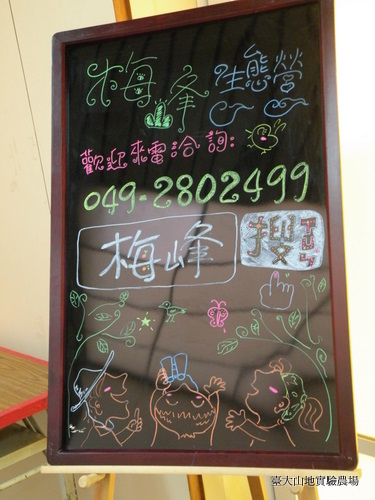 梅峰生態營
歡迎來電洽詢:
049-2802499
梅峰 搜
臺大山地實驗農場